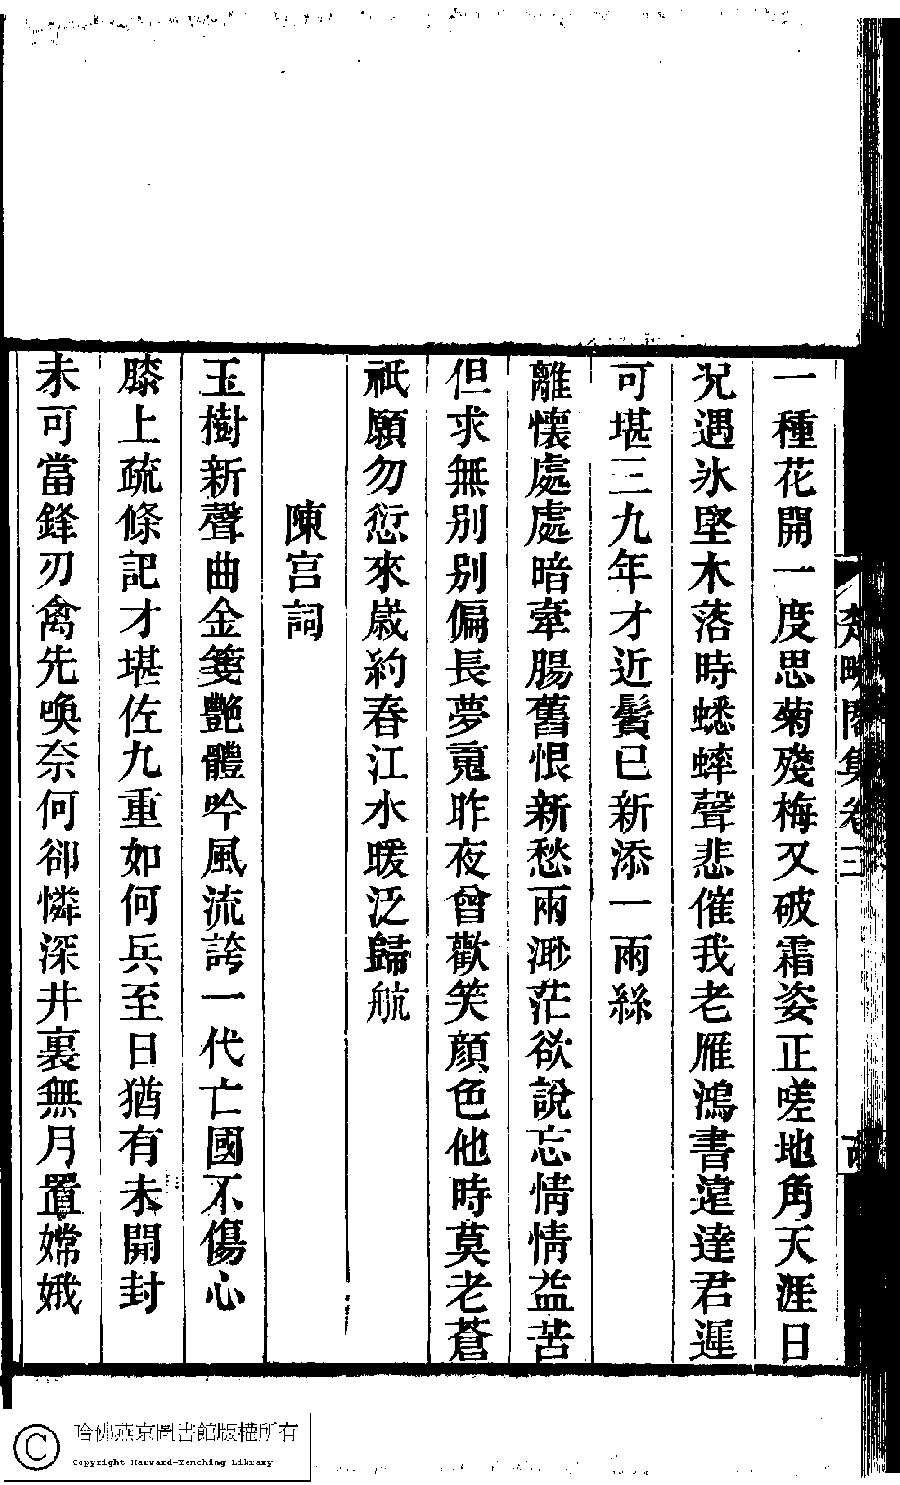 一種花開一度思菊殘梅又破霜姿正嗟地角天涯日
况遇氷堅木落時蟋蟀聲悲催我老雁鴻書遠達君遲
可堪三九年才近鬢已新添一兩絲
離懷處處暗牽腸舊恨新愁兩渺茫欲說忘情情益苦
但求無別別偏長夢䰟昨夜曾歡笑顏色他時莫老蒼
祇願勿愆來嵗約春江水暖泛歸航
陳宮詞
玉樹新聲曲金箋艷體吟風流誇一代亡國不傷心
膝上疏條記才堪佐九重如何兵至日猶有未開封
未可當鋒刃禽先喚奈何卻憐深井裏無月置嫦娥
閣集卷三
哈佛燕京圖書館版權所有
Copyright Harvard-Yenching Library